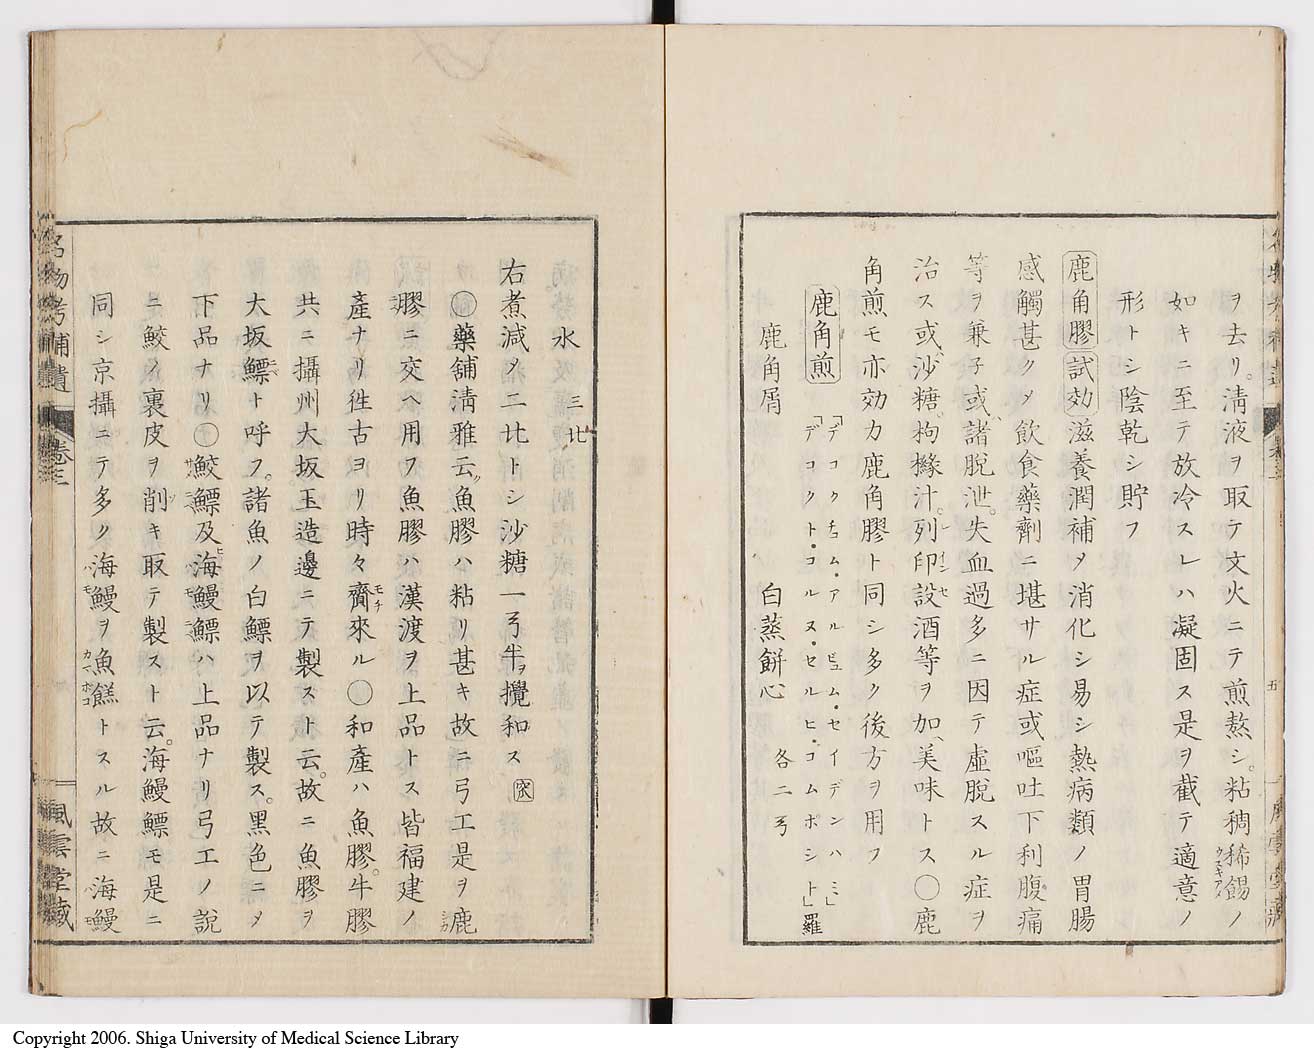 ヲ去リ。淸液ヲ取テ文火ニテ煎熬シ。粘稠稀餳ノ
如キニ至テ放冷スレハ凝固ス是ヲ截テ適意ノ
形トシ陰乾シ貯フ
鹿角膠 試効 滋養潤補ヲ消化シ易シ熱病類ノ胃腸
感觸甚クメ飮食藥劑ニ堪サル症或嘔吐下利腹痛
等ヲ兼子或、諸脫泄。失血過多ニ因テ虛脫スル症ヲ
治ス或、沙糖。枸櫞汁。列印設酒等ヲ加、美味トス〇鹿
角煎モ亦効力鹿角膠ト同シ多ク後方ヲ用フ
鹿角煎 「デコクチュム・アルビュム・セイデンハミ」
「デコクト・コルヌ・セルヒ・コムポシト」羅
鹿角屑 白蒸餠心 各二弓
水 三比
右煮減メ二比トシ沙糖一弓半ヲ攪和ス
藥舖淸雅云魚膠ハ粘リ甚キ故ニ弓工是ヲ鹿
膠ニ交ヘ用フ魚膠ハ漢渡ヲ上品トス皆福建ノ
產ナリ徃古ヨリ時々齎來ル〇和產ハ魚膠。牛膠
共ニ攝州大坂玉造邊ニテ製スト云。故ニ魚膠ヲ
大坂鰾ト呼フ。諸魚ノ白鰾ヲ以テ製ス。黑色ニメ
下品ナリ〇鮫鰾及海鰻鰾ハ上品ナリ弓工ノ說
ニ鮫ノ裏皮ヲ削キ取テ製スト云。海鰻鰾モ是ニ
同シ京攝ニテ多ク海鰻ヲ魚餻トスル故ニ海鰻
名物考補遺 卷三 風雲堂藏
Copyright 2006. Shiga University of Medical Science Library